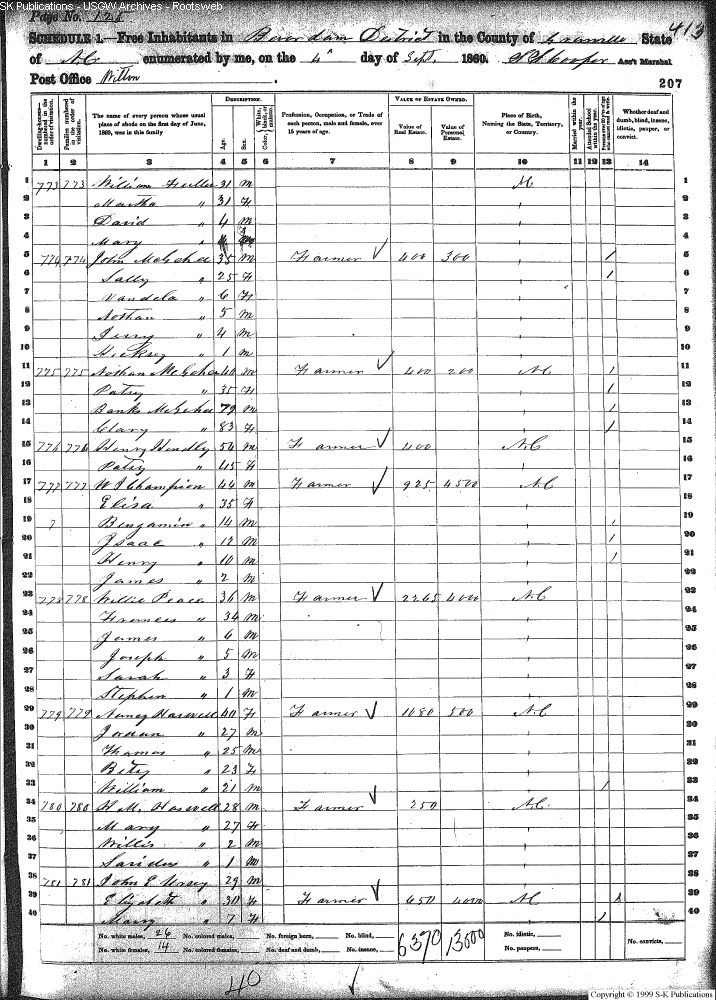 SK Publications - USGW Archives - Rootsweb
Page No. 121
413
SCHEDULE 1.—Free Inhabitants in Beverdam District in the County of Granville State
of N.C enumerated by me, on the 4" day of Sept. 1860. Cooper Ass't Marshal
Post Office Wilton
207
Dwelling-houses—numbered in the order of visitation.
Families numbered in the order of visitation.
The name of every person whose usual place of abode on the first day of June, 1860, was in this family
DESCRIPTION.
Age.
Sex.
Color, White, black, or mulatto.
Profession, Occupation, or Trade of each person, male and female, over 15 years of age.
VALUE OF ESTATE OWNED.
Value of Real Estate.
Value of Personal Estate.
Place of Birth, Naming the State, Territory, or Country.
Married within the year.
Attended School within the year.
Persons over 20 y'rs of age who cannot read & write.
Whether deaf and dumb, blind, insane, idiotic, pauper, or convict.
1 2 3 4 5 6 7 8 9 10 11 12 13 14
1 773 773 William Fuller 31 m NC 1
2 Martha " 31 F 2
3 David " 4 m 3
4 Mary " 4
5 774 774 John McGehee 35 m Farmer 400 300 / 5
6 Sally " 25 F / 6
7 Vandela " 6 F 7
8 Nathan " 5 m 8
9 " 4 m 9
10 " 1 m 10
11 775 775 Nathan McGehee 40 m Farmer 400 200 NC / 11
12 Patsy " 35 F / 12
13 Banks McGehee 79 m / 13
14 Clary " 83 F / 14
15 776 776 Henry Hendly 54 m Farmer 400 NC 15
16 Patsy " 45 F 16
17 777 777 W Champion 44 m Farmer 925 4500 NC 17
18 Elisa " 35 F 18
19 Bengamin " 14 m / 19
20 Isaac " 12 m / 20
21 Henry " 10 m / 21
22 James " 2 m 22
23 778 778 Willie Peace 36 m Farmer 2265 4000 NC 23
24 Frances " 34 m 24
25 James " 6 m 25
26 Joseph " 5 m 26
27 Sarah " 3 F 27
28 Stephen " 1 m 28
29 779 779 Nancy Haswell 40 F Farmer 1080 500 NC 29
30 Jordan " 27 m 30
31 Thomas " 25 m 31
32 Betsy " 23 F 32
33 William " 21 m / 33
34 780 780 H M. Haswell 28 m Farmer 250 NC 34
35 Mary " 27 F 35
36 Willis " 2 m 36
37 " 1 m 37
38 781 781 John E 29 m 38
39 Elizabeth " 30 F Farmer 650 4000 NC 39
40 Mary " 7 F / 40
No. white males, 26 No. colored males, No. foreign born, No. blind, 6370 13000 No. idiotic, No. convicts,
No. white females, 14 No. colored females, No. deaf and dumb, No. insane, No. paupers,
40
Copyright © 1999 S-K Publications